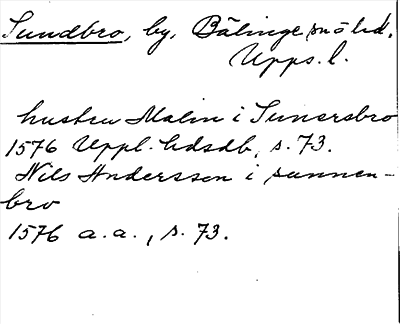 Sundbro, by, Bälinge snö hd.
Upps. l.
hustru Malin i Sunersbro
1576 Uppl. hdsdb, s. 73.
Nils Andersson i sunnen-
bro
1576 a. a., s. 73.